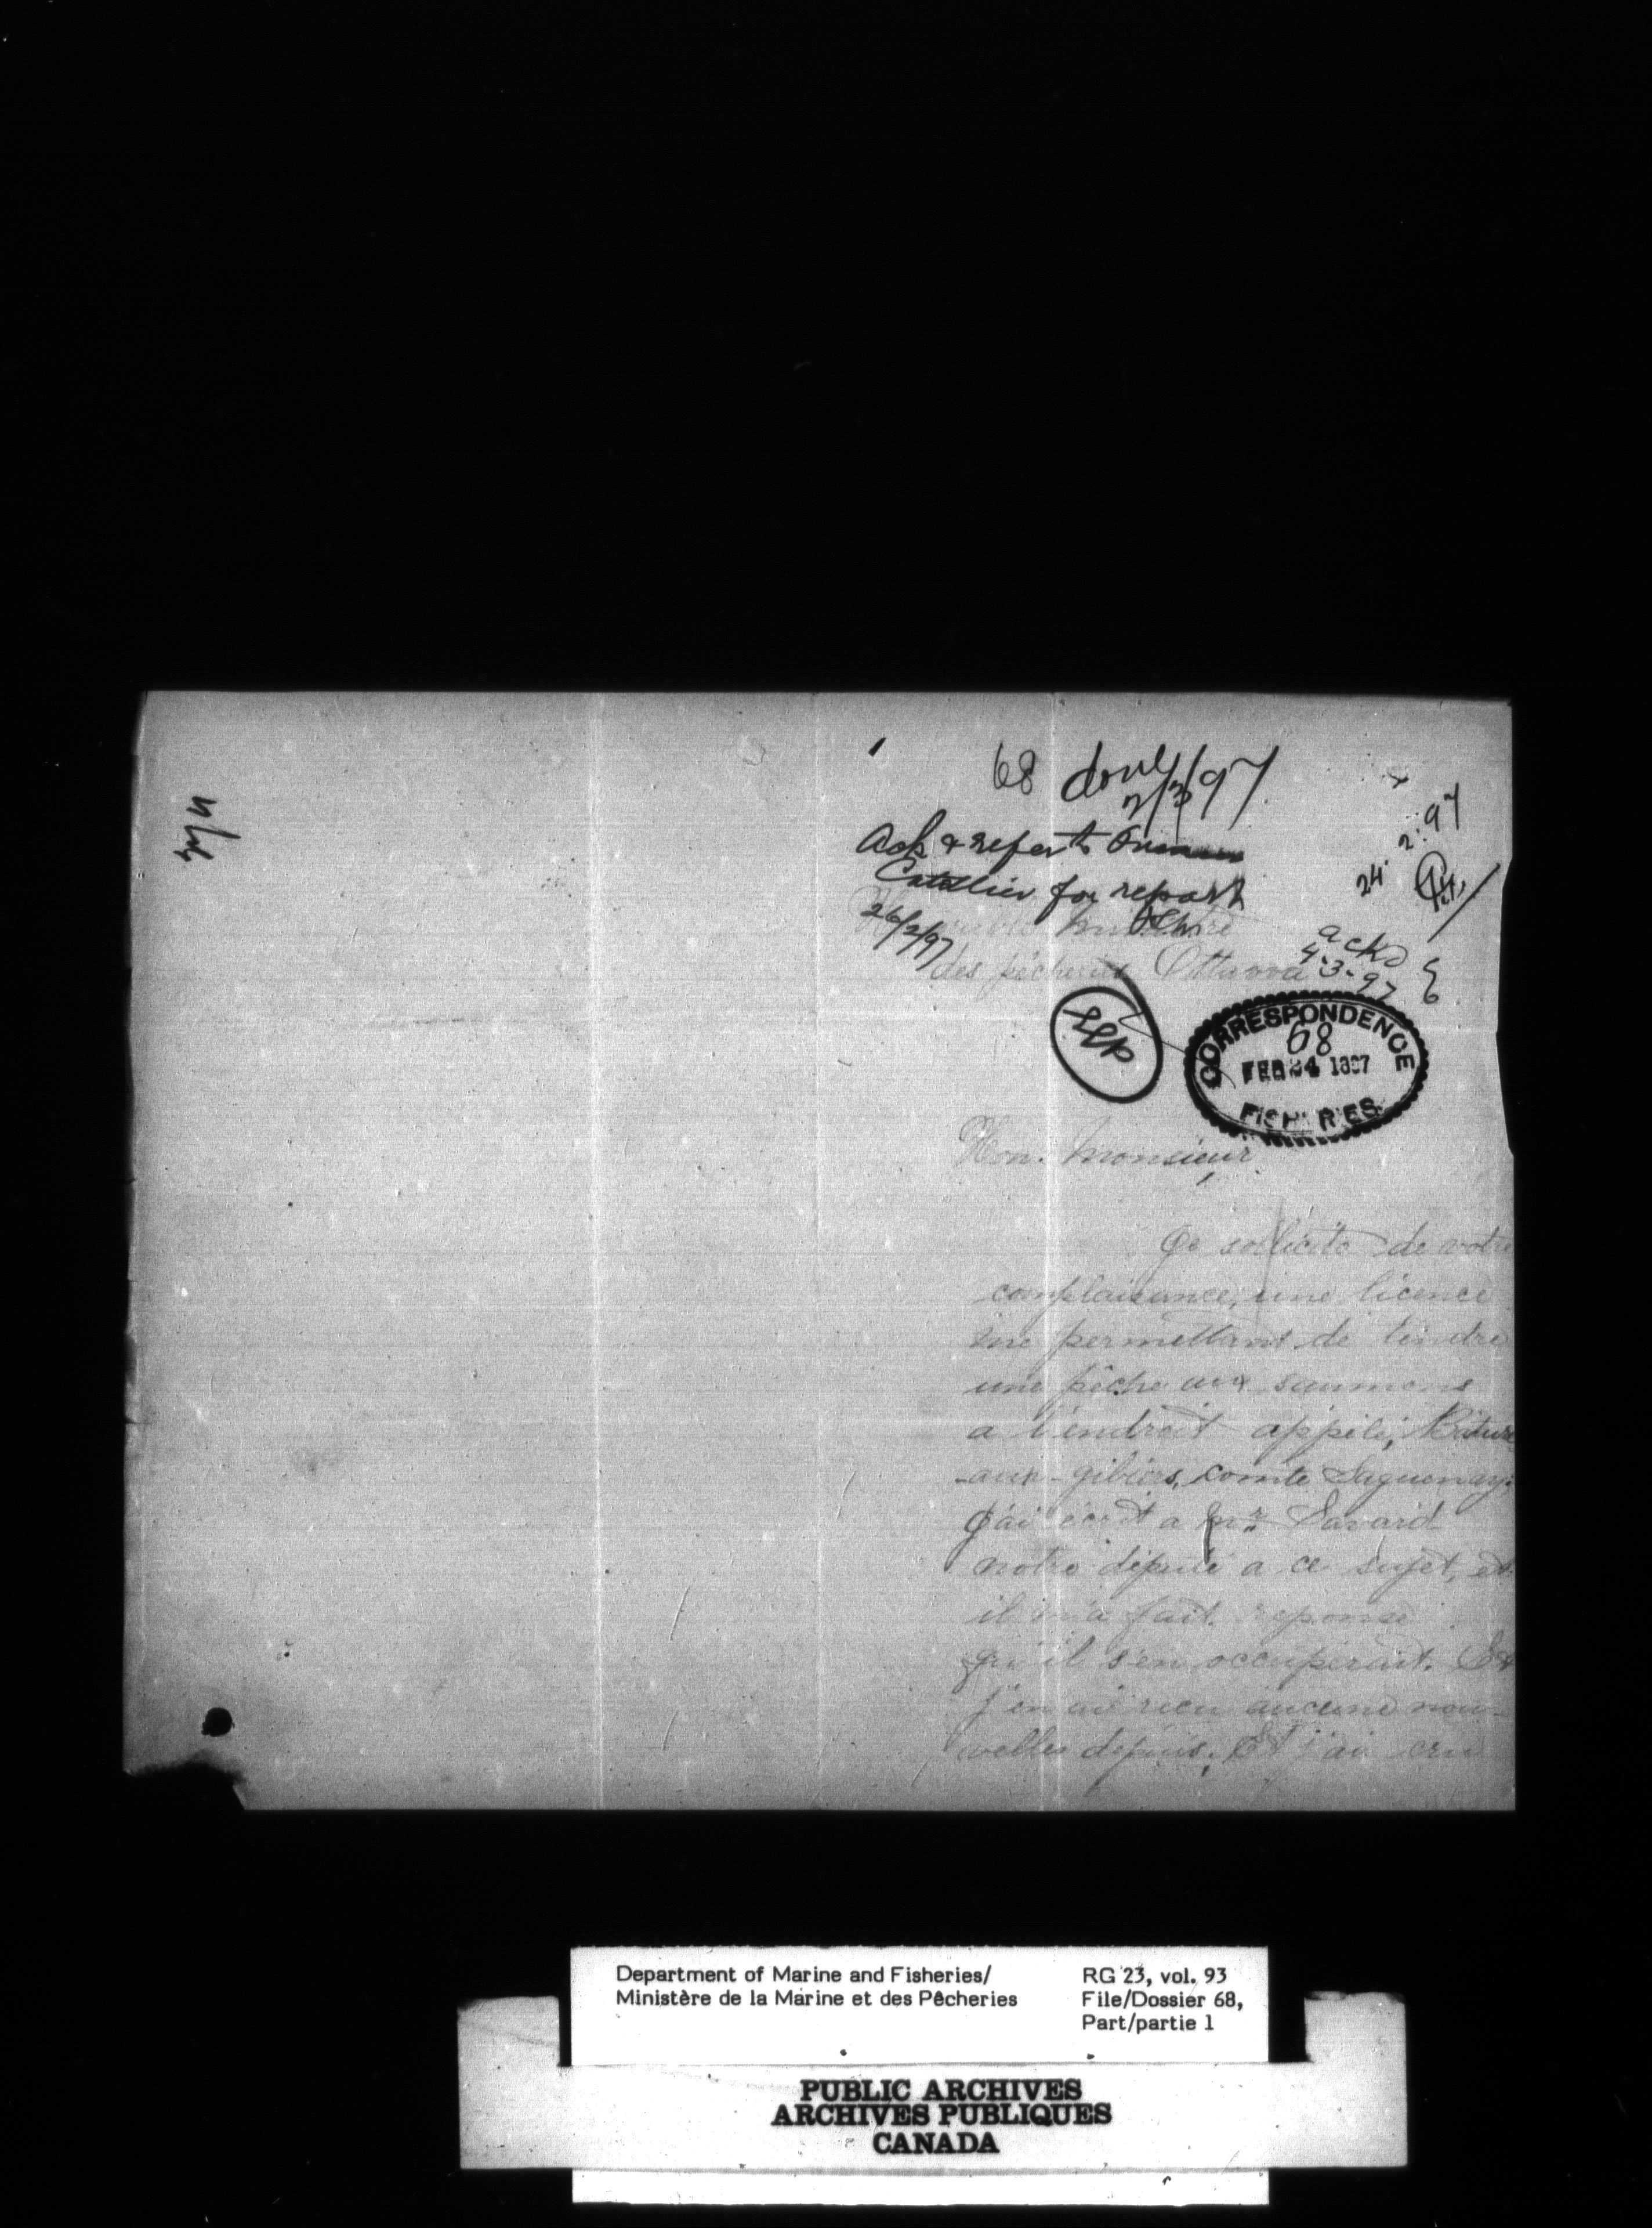 68 done
2/3/97
24. 2. 97
Ack & refer to
Catellier for report
26/2/97
Ministre
des pêcheries Ottawa
ackd
4-3-97
CORRESPONDENCE
68
FEB 24 1897
FISHERIES
Hon. Monsieur,
Je sollicite de votre
complaisance, une licence
me permettant de tendre
une pêche aux saumons
a l'endroit appelé, Bature
-aux-gibiers, comte Saguenay.
J'ai écrit a Mr. Savard
notre député a ce sujet, et
il m'a fait reponse
qu'il s'en occuperait. Et
j'en ai recu aucune nou-
velles depuis. Et j'ai cru
Department of Marine and Fisheries/
Ministère de la Marine et des Pêcheries
RG 23, vol. 93
File/Dossier 68,
Part/partie 1
PUBLIC ARCHIVES
ARCHIVES PUBLIQUES
CANADA